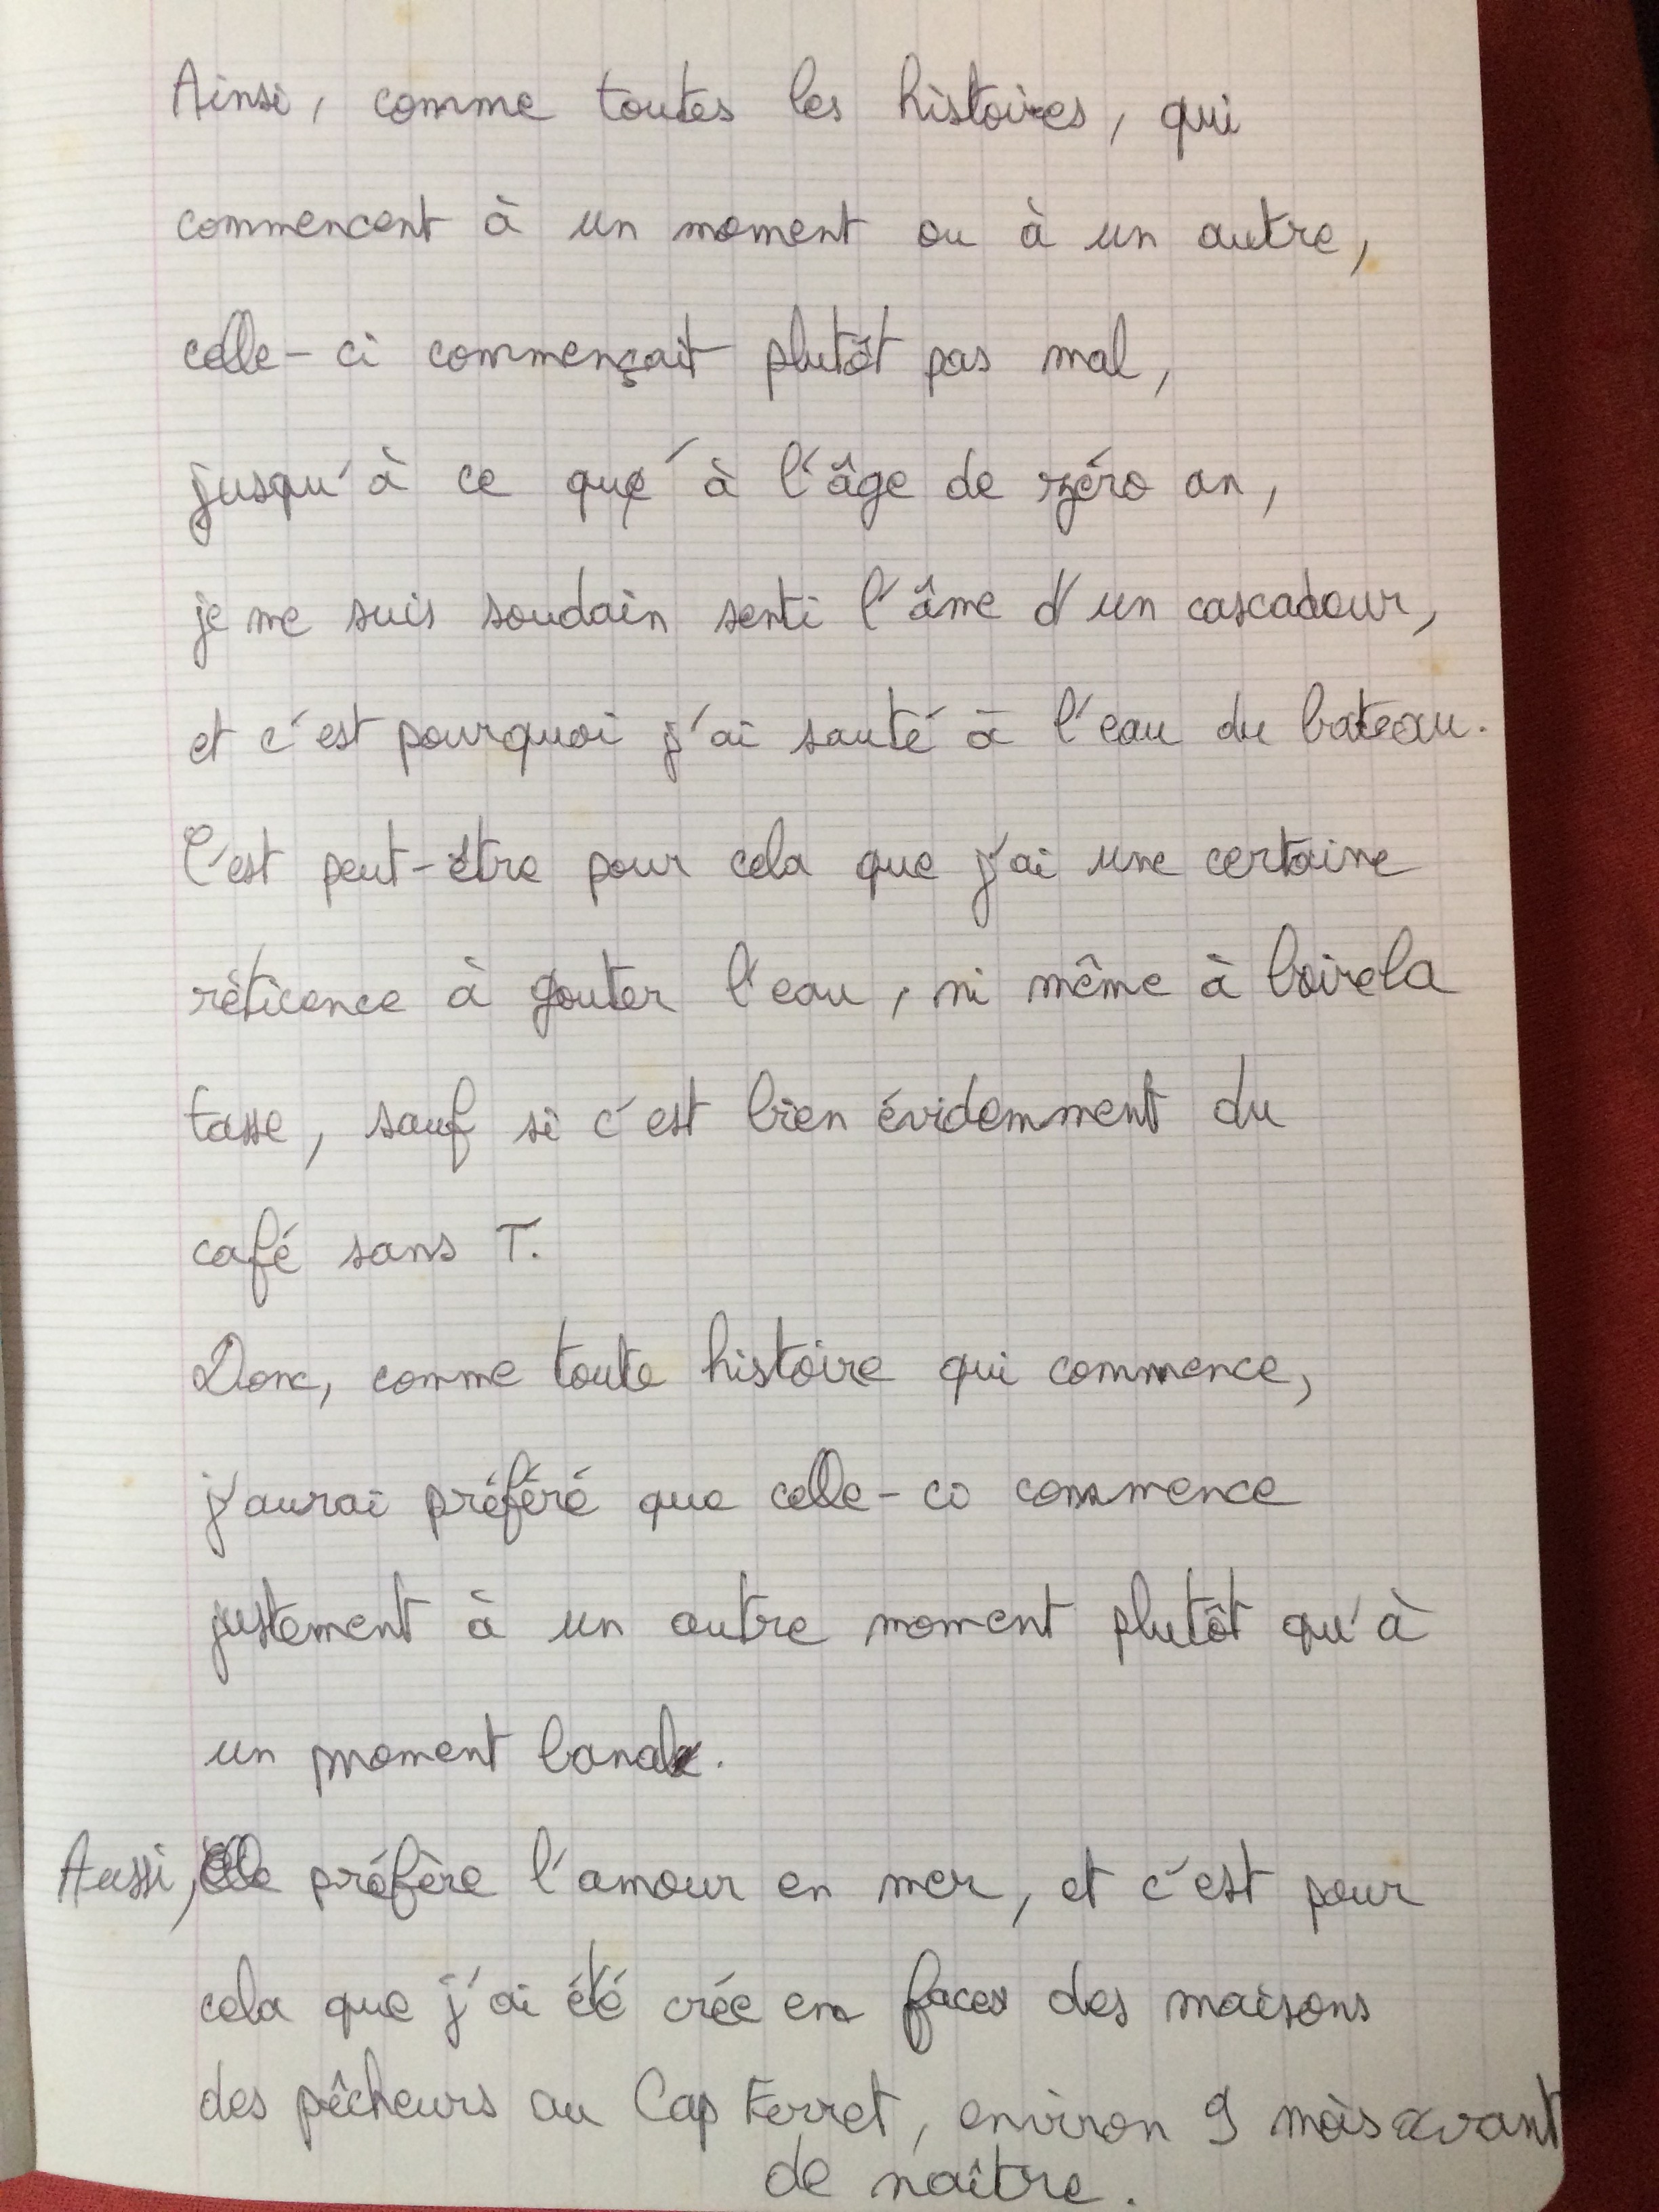 Ainsi, comme toutes les histoires, qui
commencent à un moment ou à un autre,
celle-ci commençait plutôt pas mal,
jusqu'à ce qu'à l'âge de zéro an,
je me suis soudain senti l'âme d'un cascadeur,
et c'est pourquoi j'ai sauté à l'eau du bateau.
C'est peut-être pour cela que j'ai une certaine
réticence à gouter l'eau, ni même à boire la
tasse, sauf si c'est bien évidemment du
café sans T.
Donc, comme toute histoire qui commence,
j'aurai préféré que celle-ci commence
justement à un autre moment plutôt qu'à
un moment banal.
Aussi, elle préfère l'amour en mer, et c'est pour
cela que j'ai été crée en face des maisons
des pêcheurs au Cap Ferret, environ 9 mois avant
de naître.